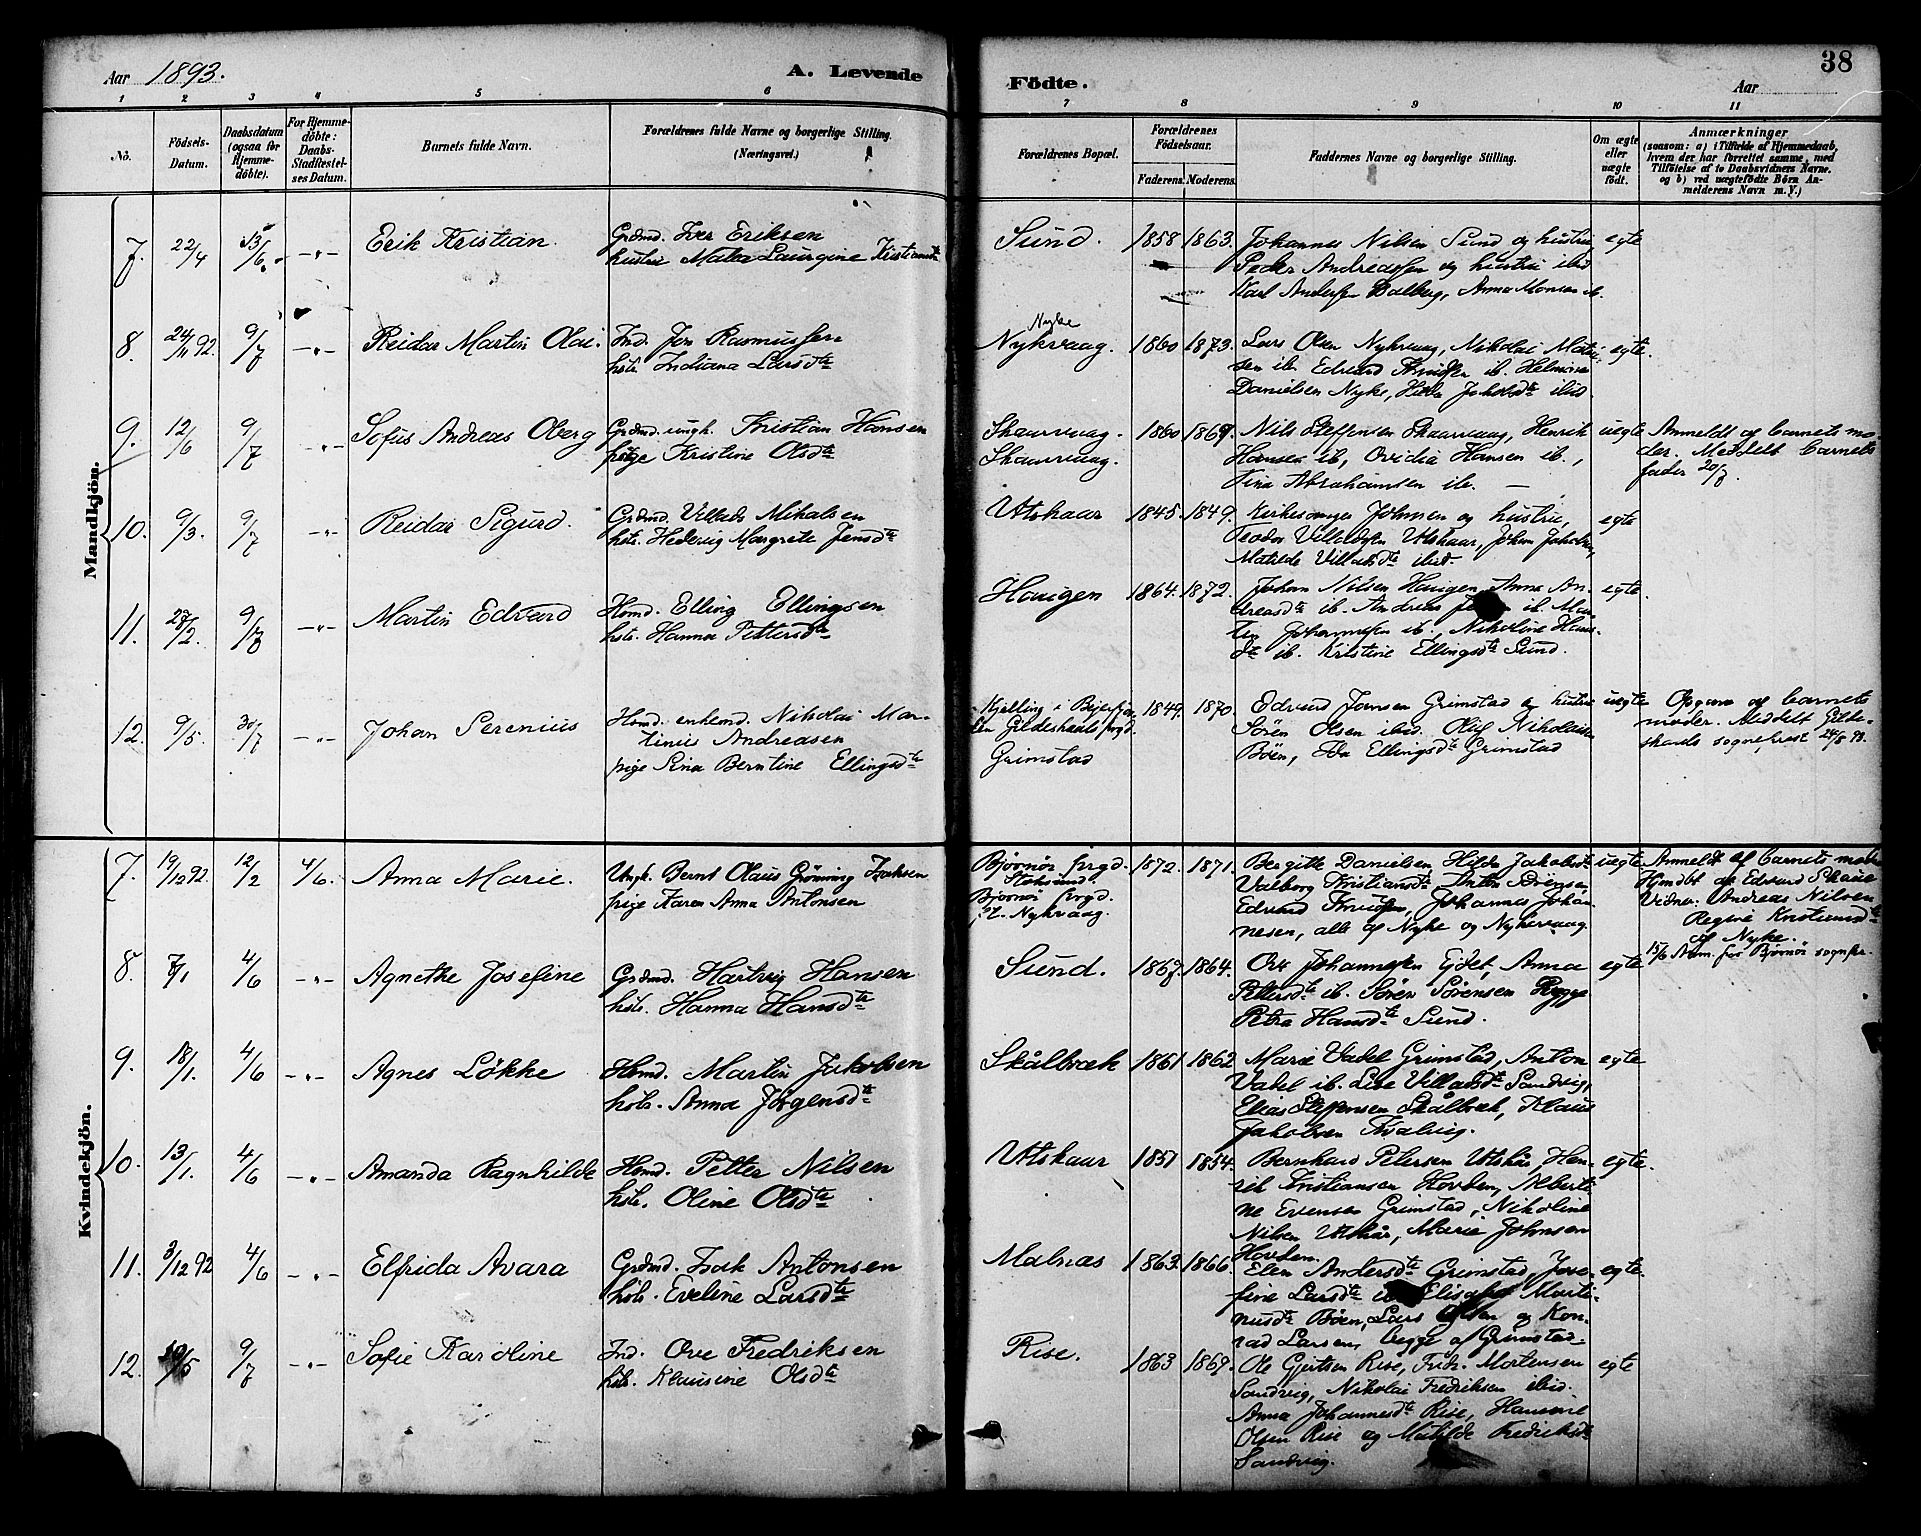 Aar 1893.
A. Levende
Födte.
Aar
38
1 2 3 4 5 6 7 8 9 10 11
No.
Födsels-
Datum.
Daabsdatum
(ogsaa for
Hjemme-
döbte).
For Hjemme-
döbte:
Daabs-
Stadfæstel-
ses Datum.
Barnets fulde Navn.
Forældrenes fulde Navne og borgerlige Stilling.
(Næringsvei.)
Forældrenes Bopæl.
Forældrenes
Födselsaar.
Faderens. Moderens.
Faddernes Navne og borgerlige Stilling.
Om ægte
eller
uægte
födt.
Anmærkninger
(saasom: a) i Tilfælde af Hjemmedaab,
hvem der har forrettet samme, med
Tilföielse af to Daabsvidners Navne.
og b) ved uægtefödte Börn An-
melderens Navn m. V.)
Mandkjön.
7. 22/4 Erik Kristian.
Grdmd. Iver Eriksen
hustru Laurgine
Sund. 1858 1863.
Johannes Nilsen Sund og hustru
Peder Andreassen og hustru ibid
Karl Anderssen Dalberg, Anna Monsen ib.
egte
8. 24/11 92. 9/7 -"- Reidar Martin Olai.
Ind. Jon Rasmussen
hstr. Indiana Larsdtr
Nyke
Nykvaag. 1860 1873.
Lars Olsen Nykvaag, Nikolai Mati-
sen ib. Edvard Knudsen ib. Helmine
Danielsen Nyke, Hilda Jakobsdtr ibid.
egte.
9. 12/6 9/7 -"- Sofus Andreas Oberg
Grdmd. ungk. Kristian Hansen
pige Kristine Olsdtr
Skaarvaag.
Skaarvaag.
1860 1869.
Nils Steffensen Skaarvaag, Henrik
Hansen ib, Ovidia Hansen ib.,
Tina Abrahamsen ib. —
uegte
Anmeldt af barnets mo-
der. Meddelt barnets
fader
10. 9/3. 9/7 -"- Reidar Sigurd.
Grdmd. Villads Mikalsen
hstr. Hedevig Margrete Jensdtr
Utskaar 1845. 1849.
Kirkesanger Johnsen og hustru,
Teodor Villadssen Utskaar, Johan Jakobsen,
Matilde Villadsdtr ibid.
egte
11. 9/7 -"- Martin Edvard
Hsmd. Elling Ellingsen
hstr. Hanna Pettersdtr
Haugen 1864. 1872.
Johan Nilsen Haugen, Anna An-
dreasdtr ib. Andreas ib. Mar-
tin Johannessen ib., Nikoline Hans-
dtr ib. Kristine Ellingsdtr Sund.
egte.
12. 9/5. 30/7 -"- Johan Serenius
Hsmd. enkemd. Nikolai Mar-
tinus Andreasen
pige Sina Berntine Ellingsdtr
Kjelling i
Gildeskaals prgd.
Grimstad
1849. 1870.
Edvard Jonsen Grimstad og hustru
Sören Olsen ibid. Oluf Nikolaisen
Böen, Ida Ellingsdtr Grimstad
uegte
Opgave af barnets
moder. Meddelt Gilde-
skaals sogneprest 24/8 93.
Kvindekjön.
7. 19/12 92. 12/2 4/6. Anna Marie.
Ungk. Bernt Olaus Gjönning Isaksen
pige Karen Anna Antonsen
Bjørnør prgd.
Stoksund
Bjørnør prgd.
pt. Nykvaag.
1872. 1871.
Bergitte Danielsen, Hilda Jakobsdtr
Valborg Kristiansdtr Anton Sörensen
Edvard Knudsen, Johannes Johan-
nesen, alle af Nyke og Nykvaag
uegte
Anmeldt af barnets moder
Hjmdbt af Edvard Skaue
Vidner: Andreas Nilsen
Regine Kristiansdtr
af Nyke.
15/6 Anm. for Bjørnør sognepr.
8. 7/1 4/6 -"- Agnethe Josefine
Grdmd. Hartvig Hansen
hstr. Hanna Hansdtr
Sund. 1867. 1864.
Ove Johannessen Ejdet, Anna
Pettersdtr ib. Sören Sörensen Rygge
Petra Hansdtr Sund.
egte
9. 18/1. 4/6 -"- Agnes Løkke
Hsmd. Martin Jakobsen
hstr. Anna Jørgensdtr
Skålbræk 1861 1862
Marie Vadel Grimstad, Anton
Vadel ib. Lise Villadsdtr Sandvig,
Elias Steffensen Skålbræk, Klaus
Jakobsen Kvalvig.
egte
10. 13/1. 4/6 -"- Amanda Ragnhilde
Hsmd. Petter Nilsen
hstr. Oline Olsdtr
Utskaar 1851 1854.
Bernhard Petersen Utskår, Hen-
rik Kristiansen Hovden, Alberti-
ne Evensen Grimstad, Nikoline
Nilsen Utskår, Marie Johnsen
Hovden.
egte.
11. 3/12 92 4/6 -"- Elfrida Avara
Grdmd. Isak Antonsen
hstr. Eveline Larsdtr
Malnæs 1863. 1866.
Elen Andersdtr Grimstad, Jose-
fine Larsdtr ib. Elisabet Marti-
nusdtr Böen, Lars Olsen og Kon-
rad Larsen, begge af Grimstad.
egte.
12. 9/7 -"- Sofie Karoline
Ind. Ove Fredriksen
hstr. Klausine Olsdtr
Rise. 1863 1869.
Ole Gjertsen Rise, Fredr. Mortensen
Sandvig, Nikolai Fredriksen ibid.
Anna Johannesdtr Rise, Hansine
Olsen Rise og Matilde Fredriksdtr
Sandvig.
egte